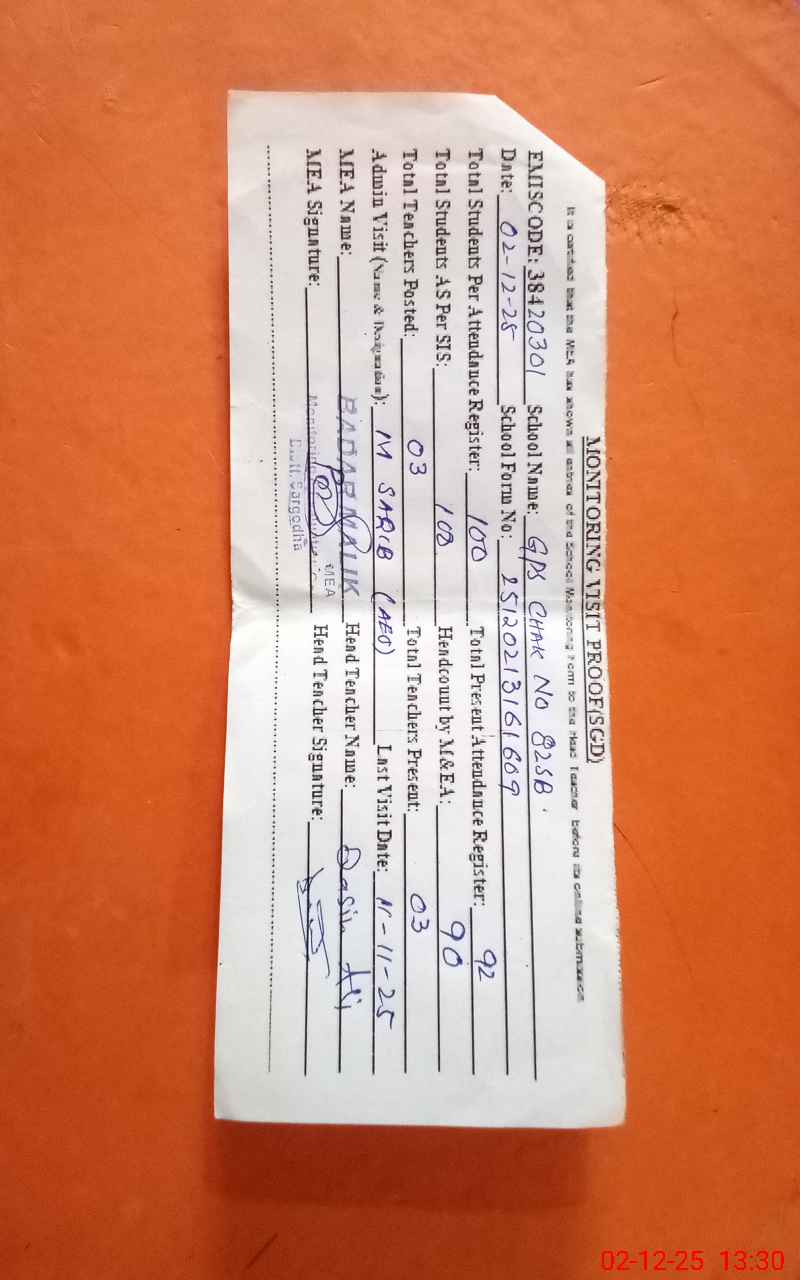 MONITORING VISIT PROOF(SGD)
It is certified that the MEA has shown all entries of the School Monitoring Form to the Head Teacher before its online submission
EMISCODE: 38420301 School Name: GPS CHAK NO 82SB.
Date: 02-12-25 School Form No: 25120213161609
Total Students Per Attendance Register: 100 Total Present Attendance Register: 92
Total Students AS Per SIS: 100 Headcount by M&EA: 90
Total Teachers Posted: 03 Total Teachers Present: 03
Admin Visit (Name & Designation): M SARIB (AEO) Last Visit Date: 11-11-25
MEA Name: BADAR MALIK Head Teacher Name: Qasim Ali
MEA Signature: MEA Head Teacher Signature:
Distt. Sargodha
02-12-25 13:30